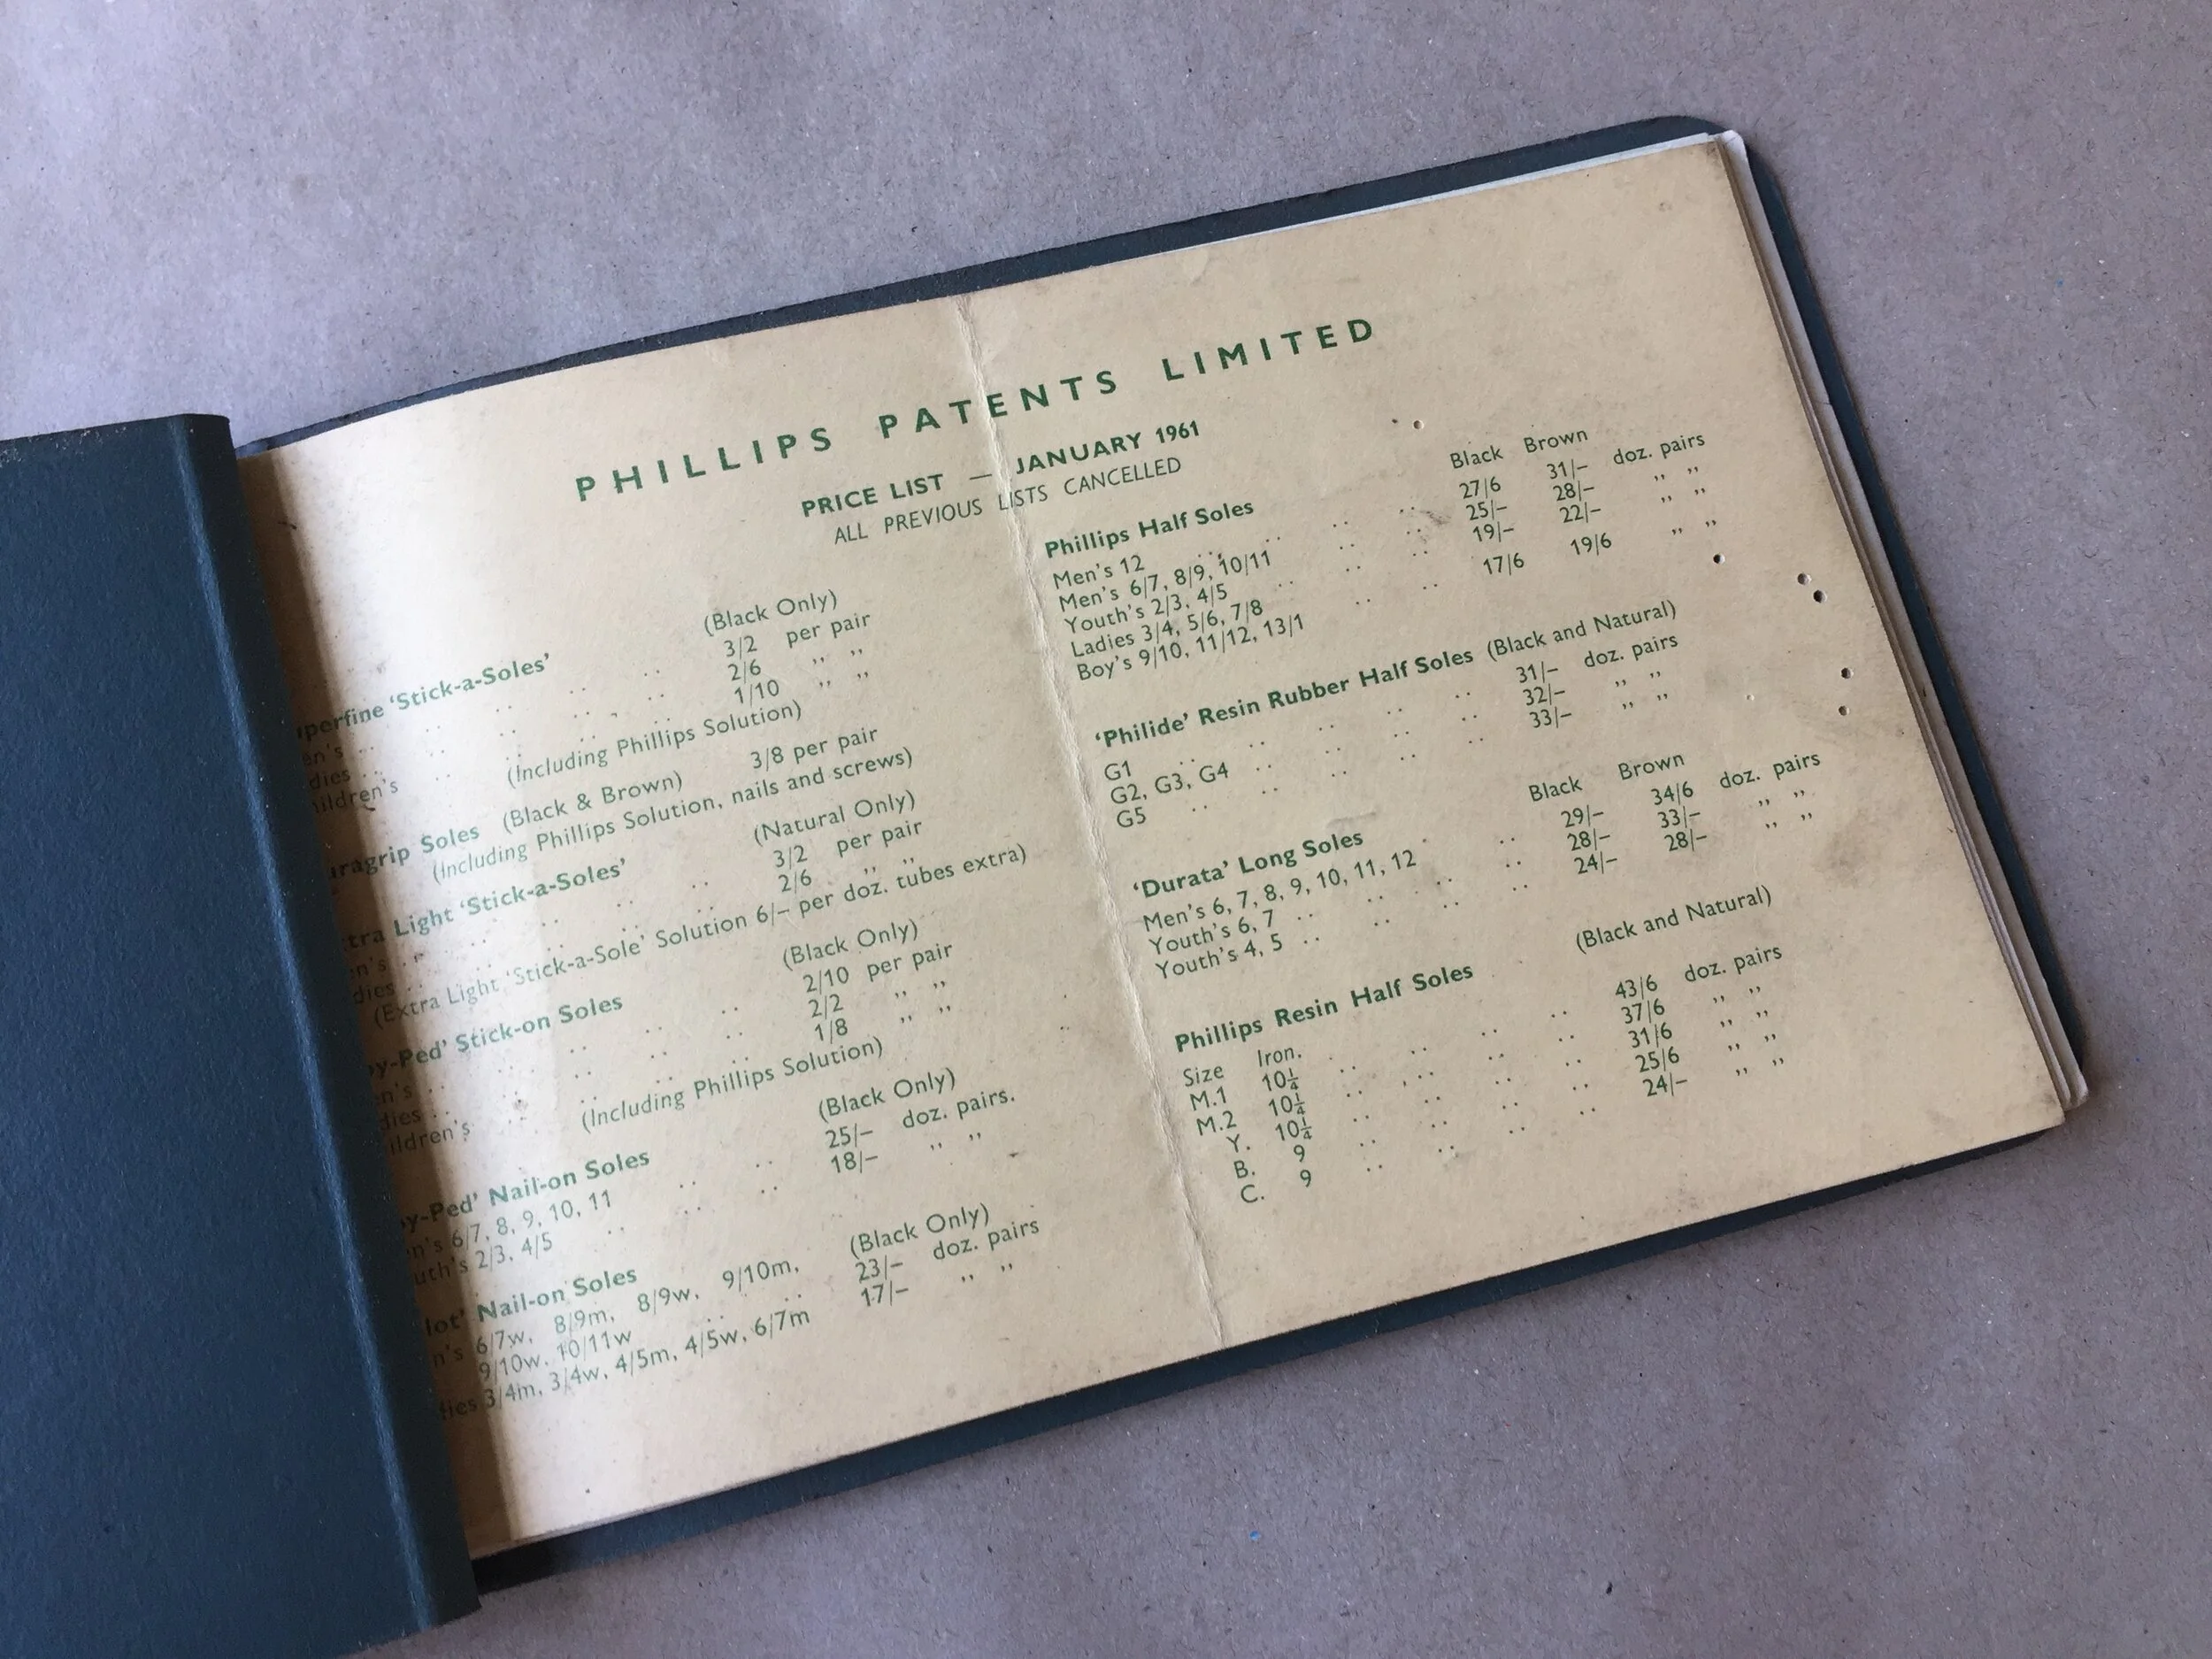 PHILLIPS PATENTS LIMITED
PRICE LIST — JANUARY 1961
ALL PREVIOUS LISTS CANCELLED
perfine 'Stick-a-Soles' (Black Only)
en's .. .. .. .. 3/2 per pair
dies .. .. .. .. 2/6 ,, ,,
ildren's .. .. .. 1/10 ,, ,,
(Including Phillips Solution)
ragrip Soles (Black & Brown) 3/8 per pair
(Including Phillips Solution, nails and screws)
tra Light 'Stick-a-Soles' (Natural Only)
n's .. .. .. .. 3/2 per pair
dies .. .. .. .. 2/6 ,, ,,
(Extra Light 'Stick-a-Sole' Solution 6/– per doz. tubes extra)
y-Ped' Stick-on Soles (Black Only)
en's .. .. .. .. 2/10 per pair
dies .. .. .. .. 2/2 ,, ,,
ildren's .. .. .. 1/8 ,, ,,
(Including Phillips Solution)
y-Ped' Nail-on Soles (Black Only)
n's 6/7, 8, 9, 10, 11 .. .. 25/– doz. pairs.
uth's 2/3, 4/5 .. .. .. 18/– ,, ,,
lot' Nail-on Soles (Black Only)
n's 6/7w, 8/9m, 8/9w, 9/10m, 23/– doz. pairs
9/10w, 10/11w .. ..
ies 3/4m, 3/4w, 4/5m, 4/5w, 6/7m 17/– ,, ,,
Phillips Half Soles Black Brown
Men's 12 .. .. .. .. 27/6 31/– doz. pairs
Men's 6/7, 8/9, 10/11 .. .. 25/– 28/– ,, ,,
Youth's 2/3, 4/5 .. .. .. 19/– 22/– ,, ,,
Ladies 3/4, 5/6, 7/8
Boy's 9/10, 11/12, 13/1 .. .. 17/6 19/6 ,, ,,
'Philide' Resin Rubber Half Soles (Black and Natural)
G1 .. .. .. .. .. 31/– doz. pairs
G2, G3, G4 .. .. .. .. 32/– ,, ,,
G5 .. .. .. .. .. 33/– ,, ,,
'Durata' Long Soles Black Brown
Men's 6, 7, 8, 9, 10, 11, 12 .. 29/– 34/6 doz. pairs
Youth's 6, 7 .. .. .. .. 28/– 33/– ,, ,,
Youth's 4, 5 .. .. .. .. 24/– 28/– ,, ,,
Phillips Resin Half Soles (Black and Natural)
Size Iron.
M.1 10¼ .. .. .. .. 43/6 doz. pairs
M.2 10¼ .. .. .. .. 37/6 ,, ,,
Y. 10¼ .. .. .. .. 31/6 ,, ,,
B. 9 .. .. .. .. 25/6 ,, ,,
C. 9 .. .. .. .. 24/– ,, ,,